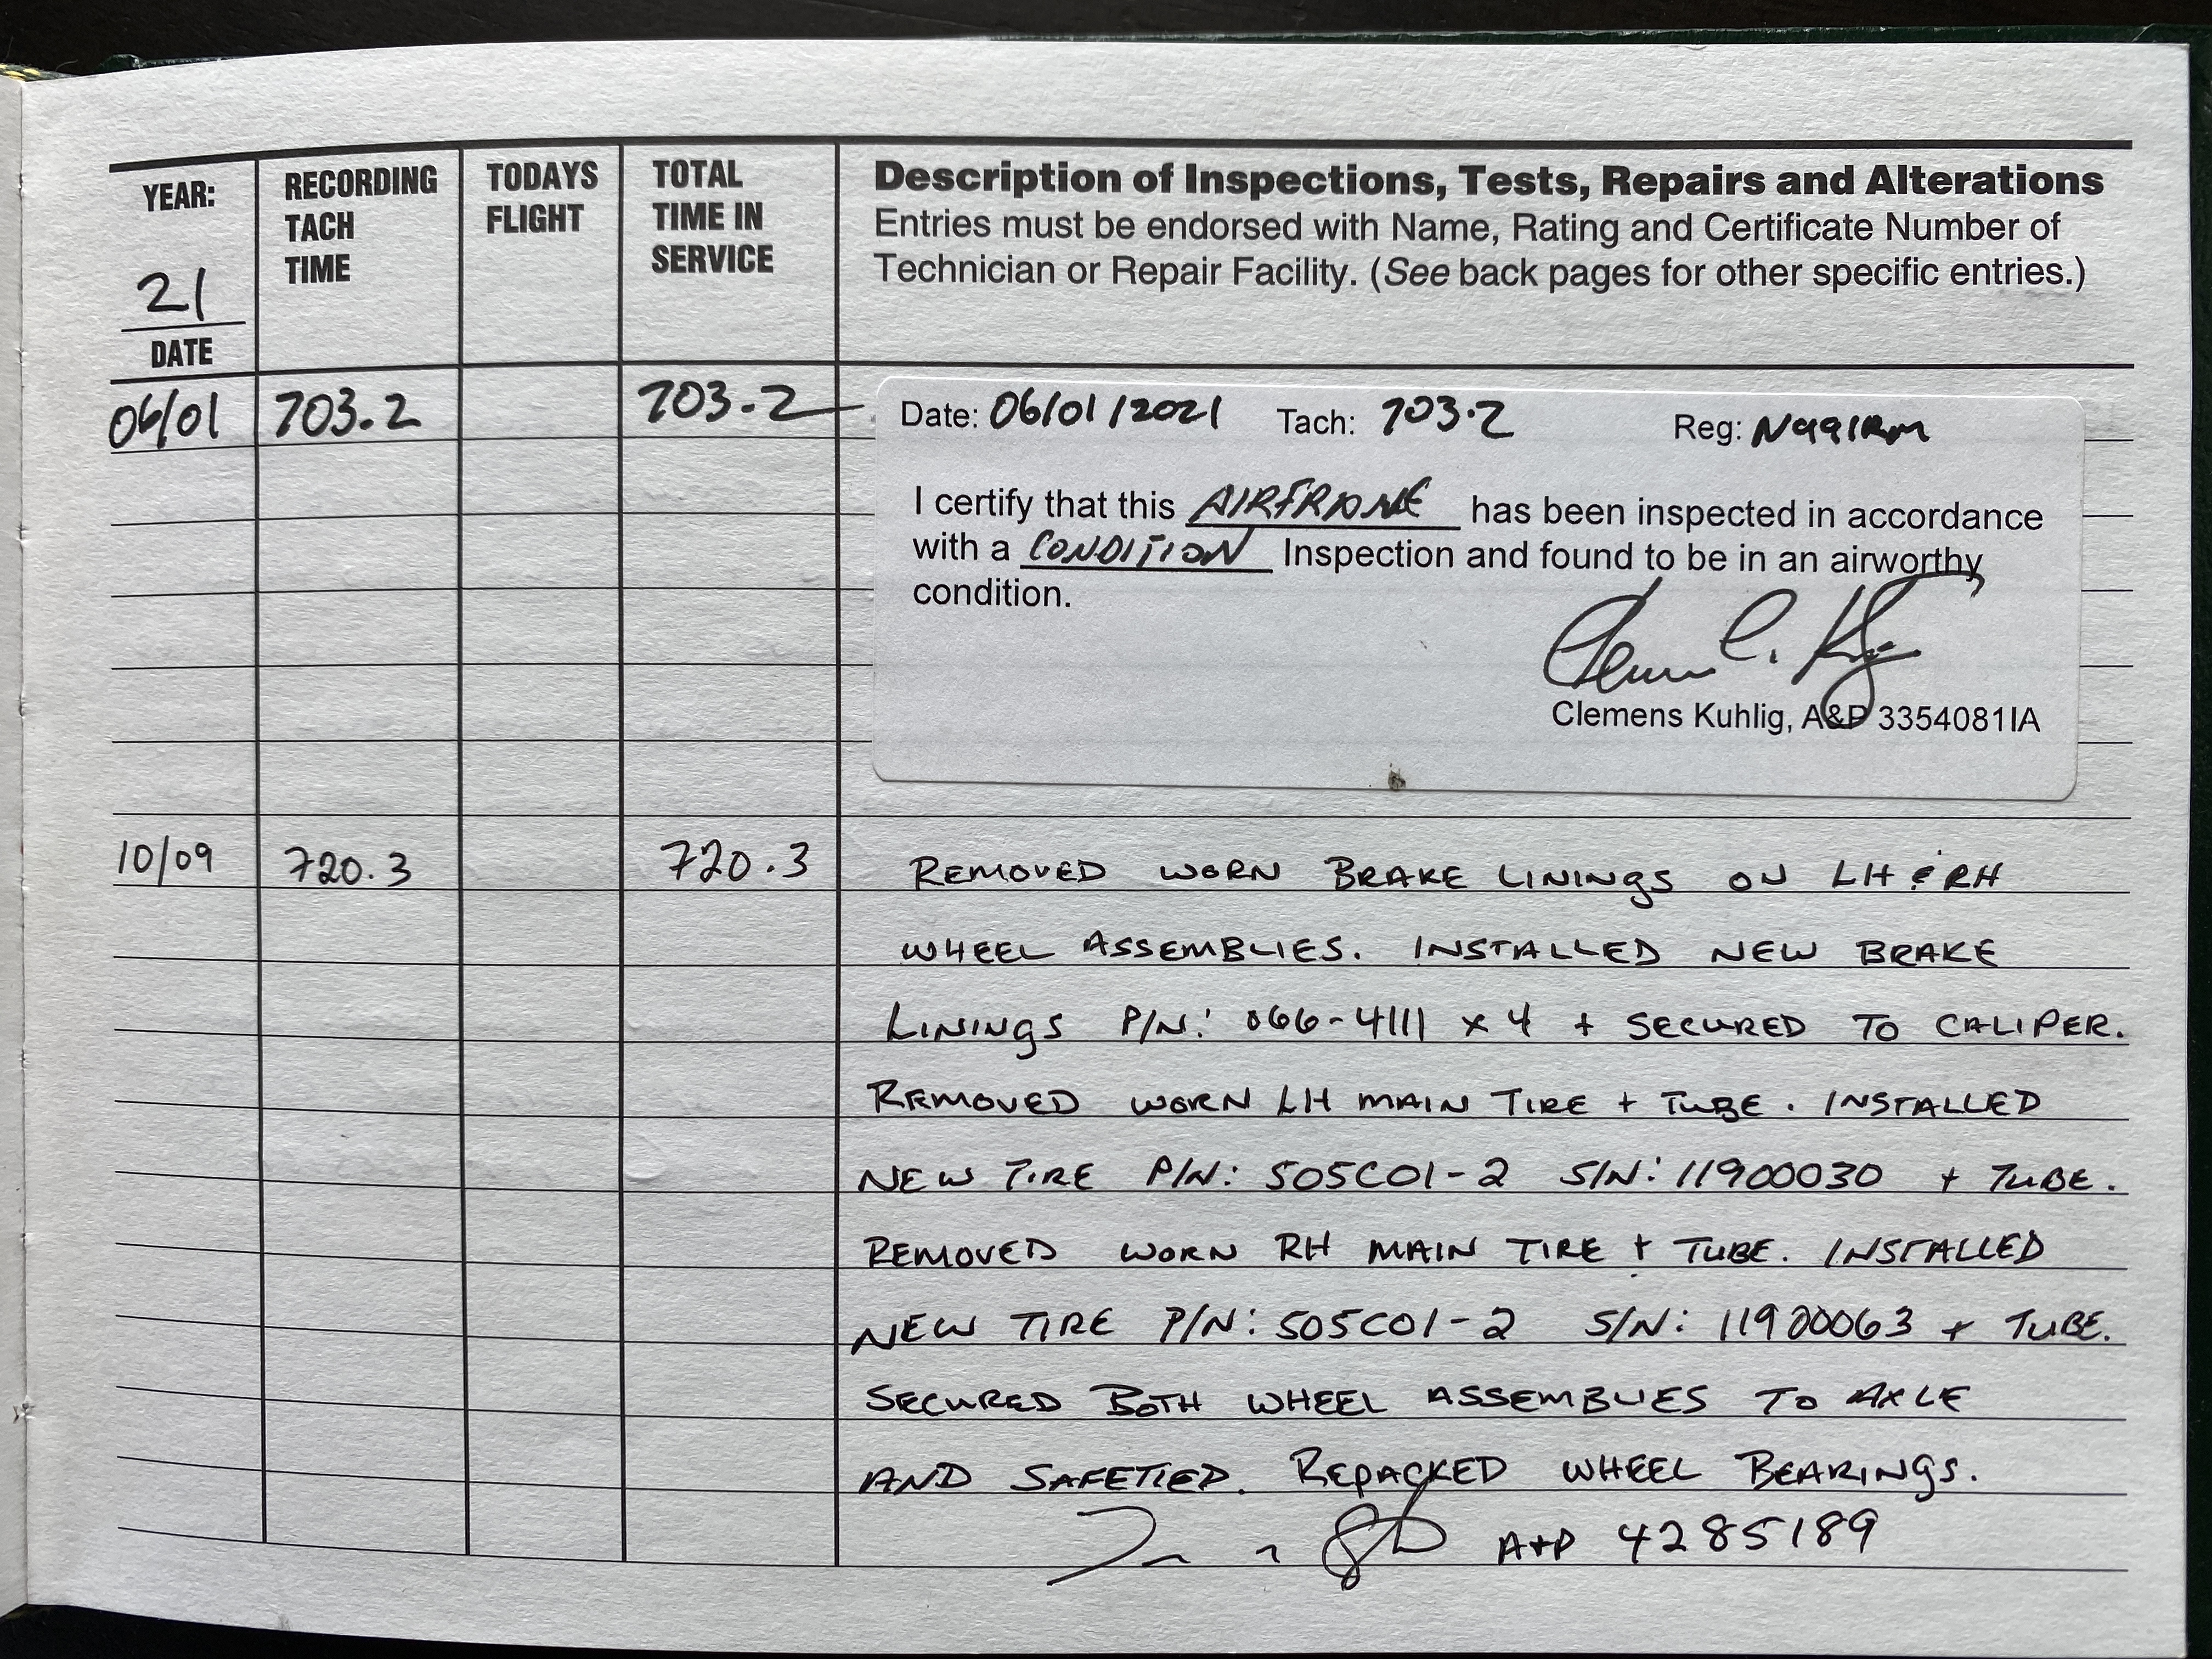 YEAR:
21
DATE
RECORDING
TACH
TIME
TODAYS
FLIGHT
TOTAL
TIME IN
SERVICE
Description of Inspections, Tests, Repairs and Alterations
Entries must be endorsed with Name, Rating and Certificate Number of
Technician or Repair Facility. (See back pages for other specific entries.)
06/01 703.2 703.2
Date: 06/01/2021 Tach: 703.2 Reg: N991RM
I certify that this AIRFRAME has been inspected in accordance
with a CONDITION Inspection and found to be in an airworthy
condition.
Clemens Kuhlig, A&P 3354081IA
10/09 720.3 720.3 REMOVED WORN BRAKE LININGS ON LH & RH
WHEEL ASSEMBLIES. INSTALLED NEW BRAKE
LININGS P/N: 066-4111 x 4 + SECURED TO CALIPER.
REMOVED WORN LH MAIN TIRE + TUBE. INSTALLED
NEW TIRE P/N: 505C01-2 S/N: 11900030 + TUBE.
REMOVED WORN RH MAIN TIRE + TUBE. INSTALLED
NEW TIRE P/N: 505C01-2 S/N: 11900063 + TUBE.
SECURED BOTH WHEEL ASSEMBLIES TO AXLE
AND SAFETIED. REPACKED WHEEL BEARINGS.
A+P 4285189